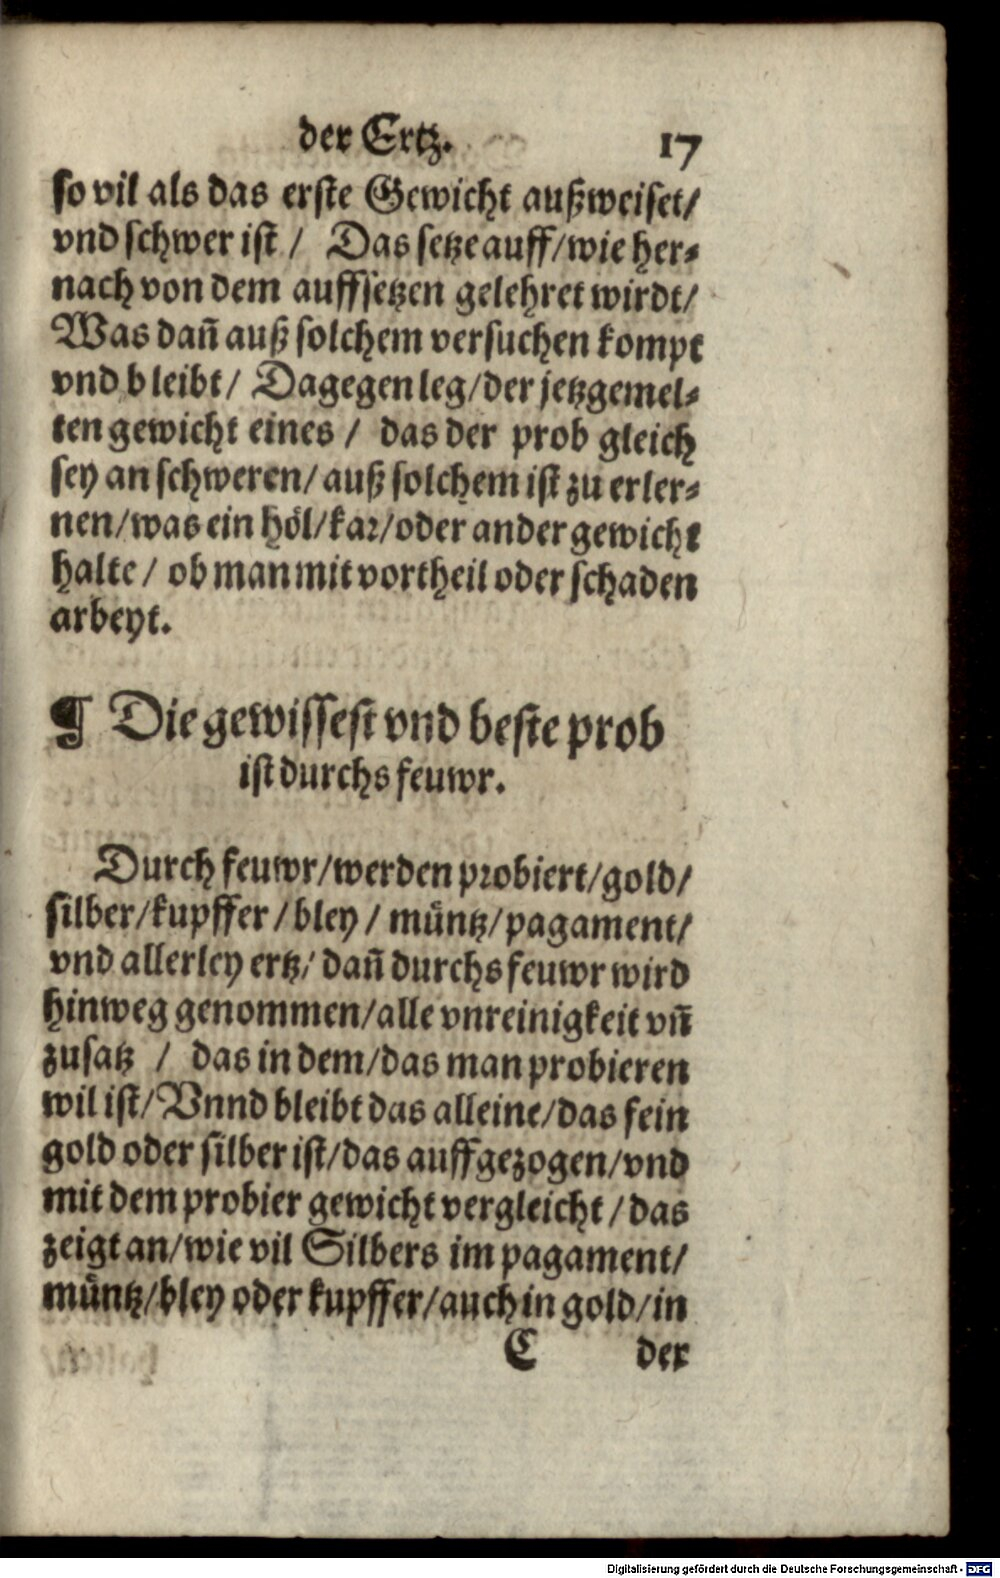 der Ertz. 17
so vil als das erste Gewicht außweiset/
vnd schwer ist / Das setze auff/wie her⸗
nach von dem auffsetzen gelehret wirdt/
Was dañ auß solchem versuchen kompt
vnd bleibt/ Dagegen leg/der jetzgemel⸗
ten gewicht eines / das der prob gleich
sey an schweren/auß solchem ist zu erler⸗
nen/was ein höl/kar/oder ander gewicht
halte / ob man mit vortheil oder schaden
arbeyt.
¶ Die gewissest vnd beste prob
ist durchs feuwr.
Durch feuwr/werden probiert/gold/
silber/kupffer/bley/ müntz/pagament/
vnd allerley ertz/ dañ durchs feuwr wird
hinweg genommen/alle vnreinigkeit vñ
zusatz / das in dem/das man probieren
wil ist/Vnnd bleibt das alleine/das fein
gold oder silber ist/das auffgezogen/vnd
mit dem probier gewicht vergleicht/das
zeigt an/wie vil Silbers im pagament/
müntz/bley oder kupffer/auch in gold/in
C der
Digitalisierung gefördert durch die Deutsche Forschungsgemeinschaft - DFG